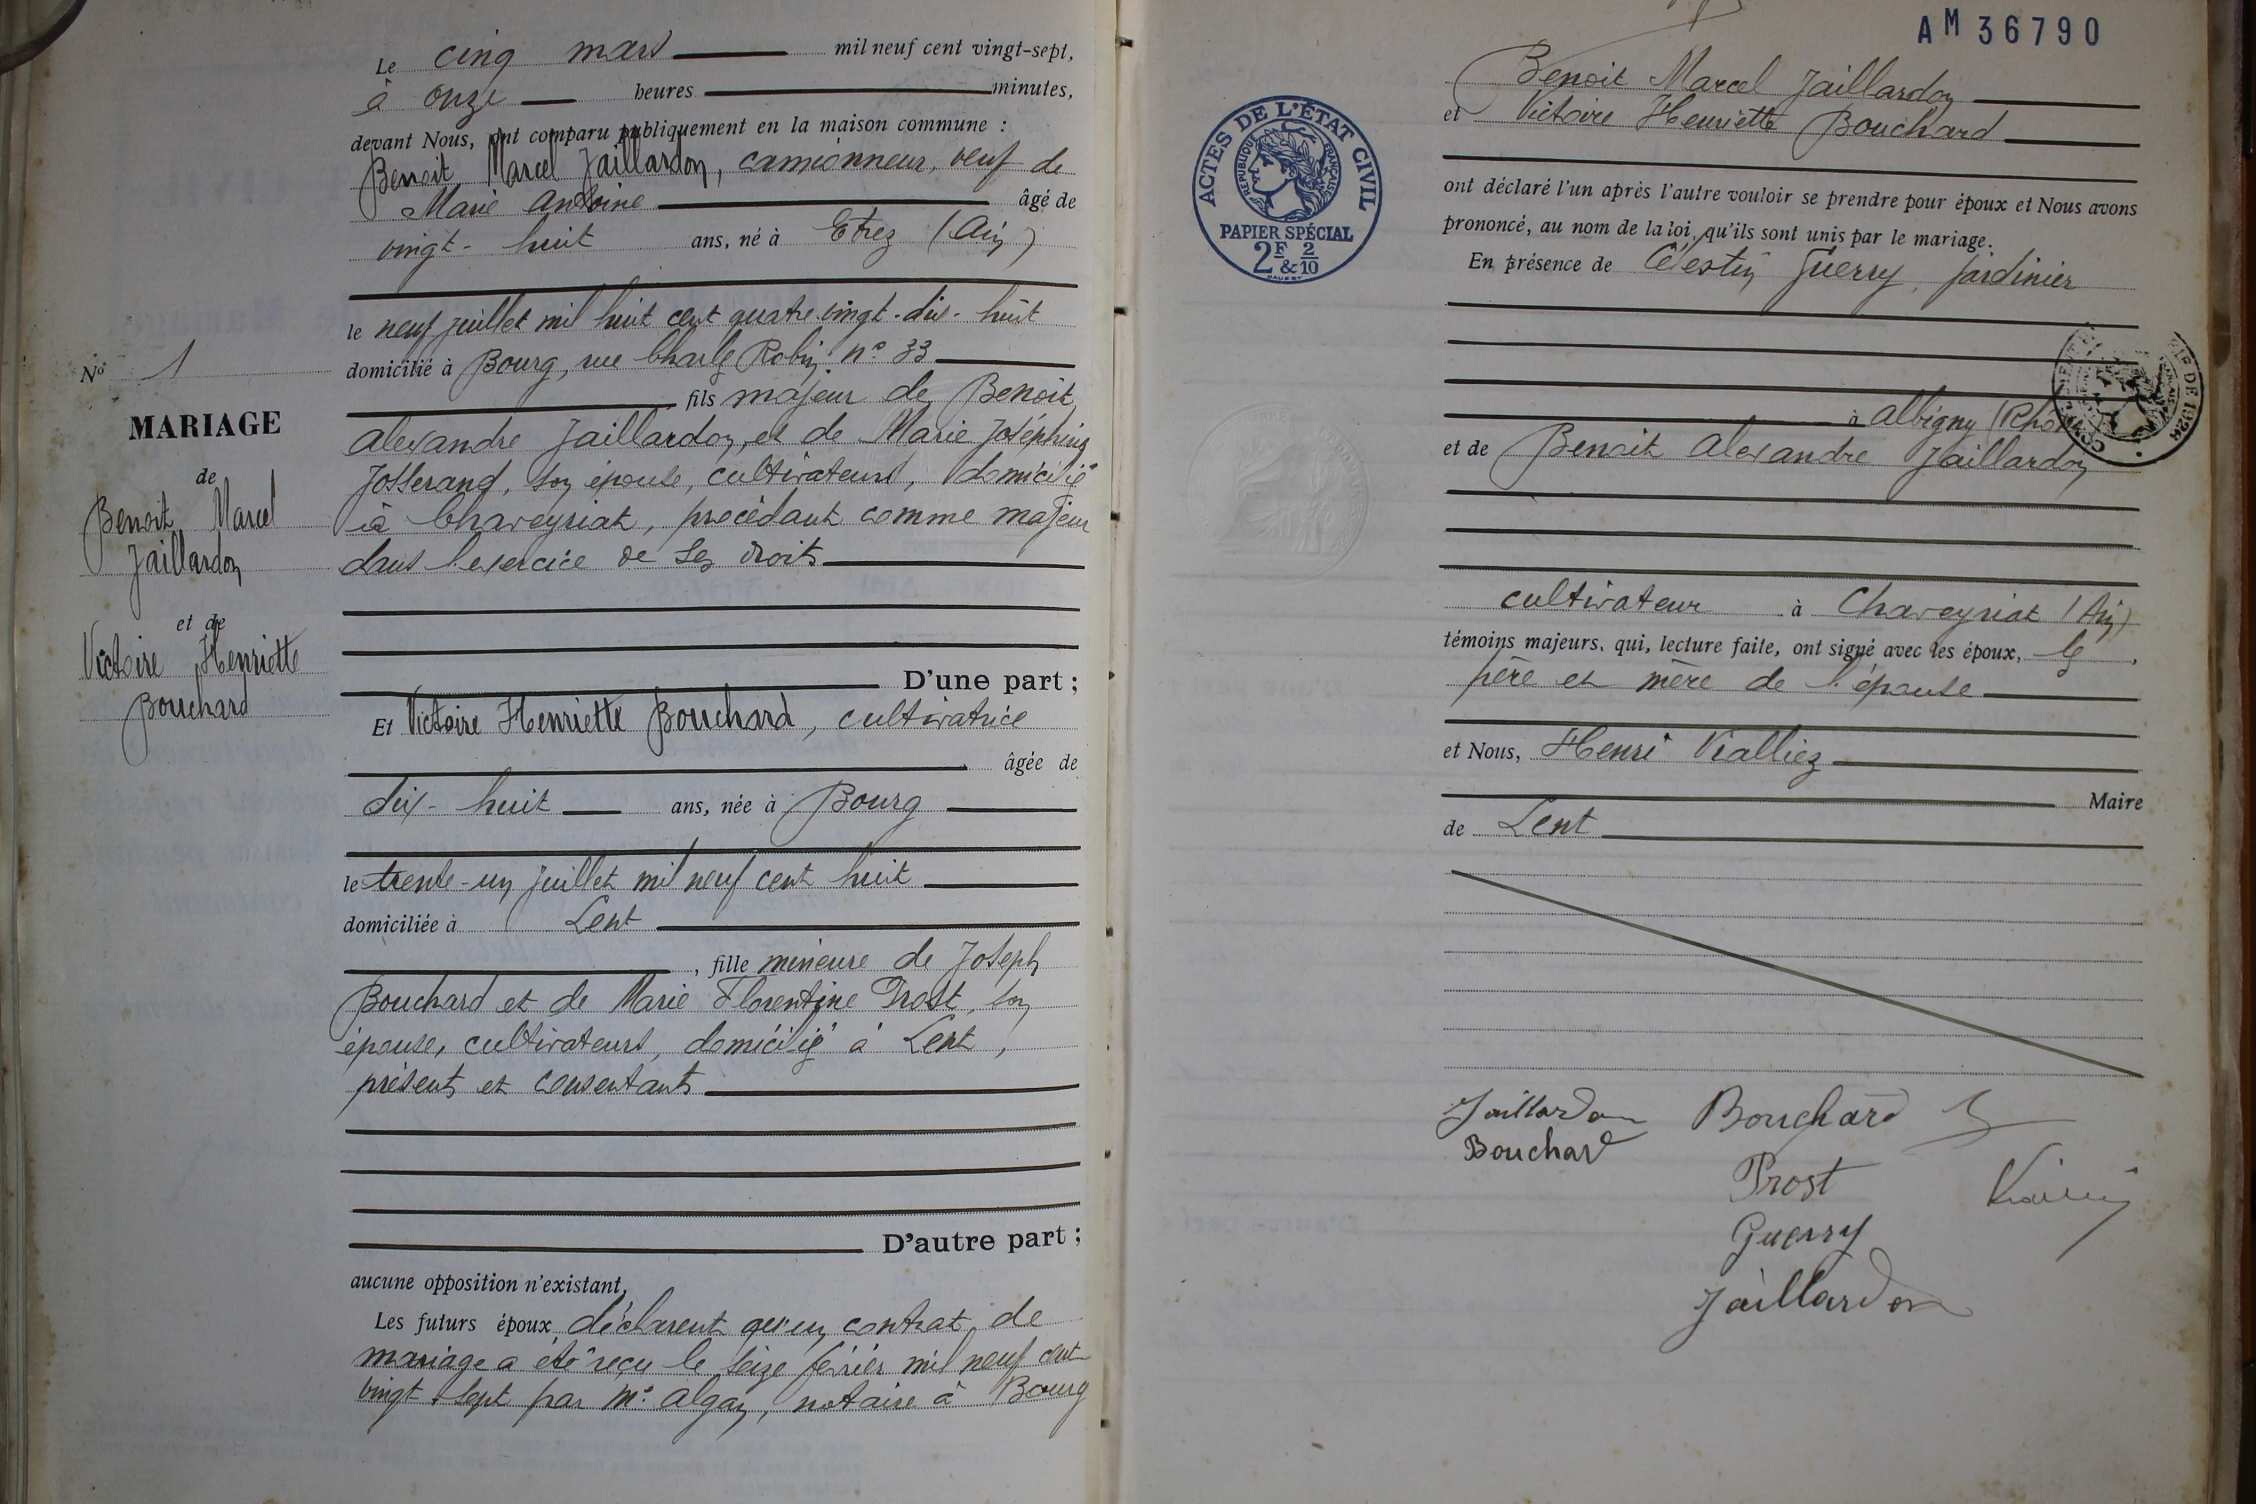 Le cinq mars mil neuf cent vingt-sept,
à onze heures minutes,
devant Nous, ont comparu publiquement en la maison commune :
Benoit Marcel Jaillardon, camionneur, veuf de
Marie Antoine âgé de
vingt-huit ans, né à Etrez (Ain)
le neuf juillet mil huit cent quatre vingt-dix-huit
domicilié à Bourg, rue Charles Robin, n° 33
fils majeur de Benoit
Alexandre Jaillardon, et de Marie Joséphine
Josserand, son épouse, cultivateurs, domiciliés
à Chaveyriat, procédant comme majeur
dans l'exercice de ses droits
D'une part ;
Et Victoire Henriette Bouchard, cultivatrice
âgée de
dix-huit ans, née à Bourg
le trente-un juillet mil neuf cent huit
domiciliée à Lent
, fille mineure de Joseph
Bouchard et de Marie Florentine Prost, son
épouse, cultivateurs, domiciliés à Lent,
présents et consentants
D'autre part ;
aucune opposition n'existant,
Les futurs époux déclarent qu'un contrat de
mariage a été reçu le seize février mil neuf cent
vingt-sept par Me Algay, notaire à Bourg
No 1
MARIAGE
de
Benoit Marcel
Jaillardon
et de
Victoire Henriette
Bouchard
AM 36790
Benoit Marcel Jaillardon
et Victoire Henriette Bouchard
ont déclaré l'un après l'autre vouloir se prendre pour époux et Nous avons
prononcé, au nom de la loi, qu'ils sont unis par le mariage.
En présence de Célestin Guerry, jardinier
à Albigny (Rhône)
et de Benoit Alexandre Jaillardon
cultivateur à Chaveyriat (Ain)
témoins majeurs, qui, lecture faite, ont signé avec les époux, les
père et mère de l'épouse
et Nous, Henri Vialliez
Maire
de Lent
Jaillardon Bouchard
Bouchard
Prost
Guerry
Jaillardon
ACTES DE L'ÉTAT CIVIL
RÉPUBLIQUE FRANÇAISE
PAPIER SPÉCIAL
2F & 2/10